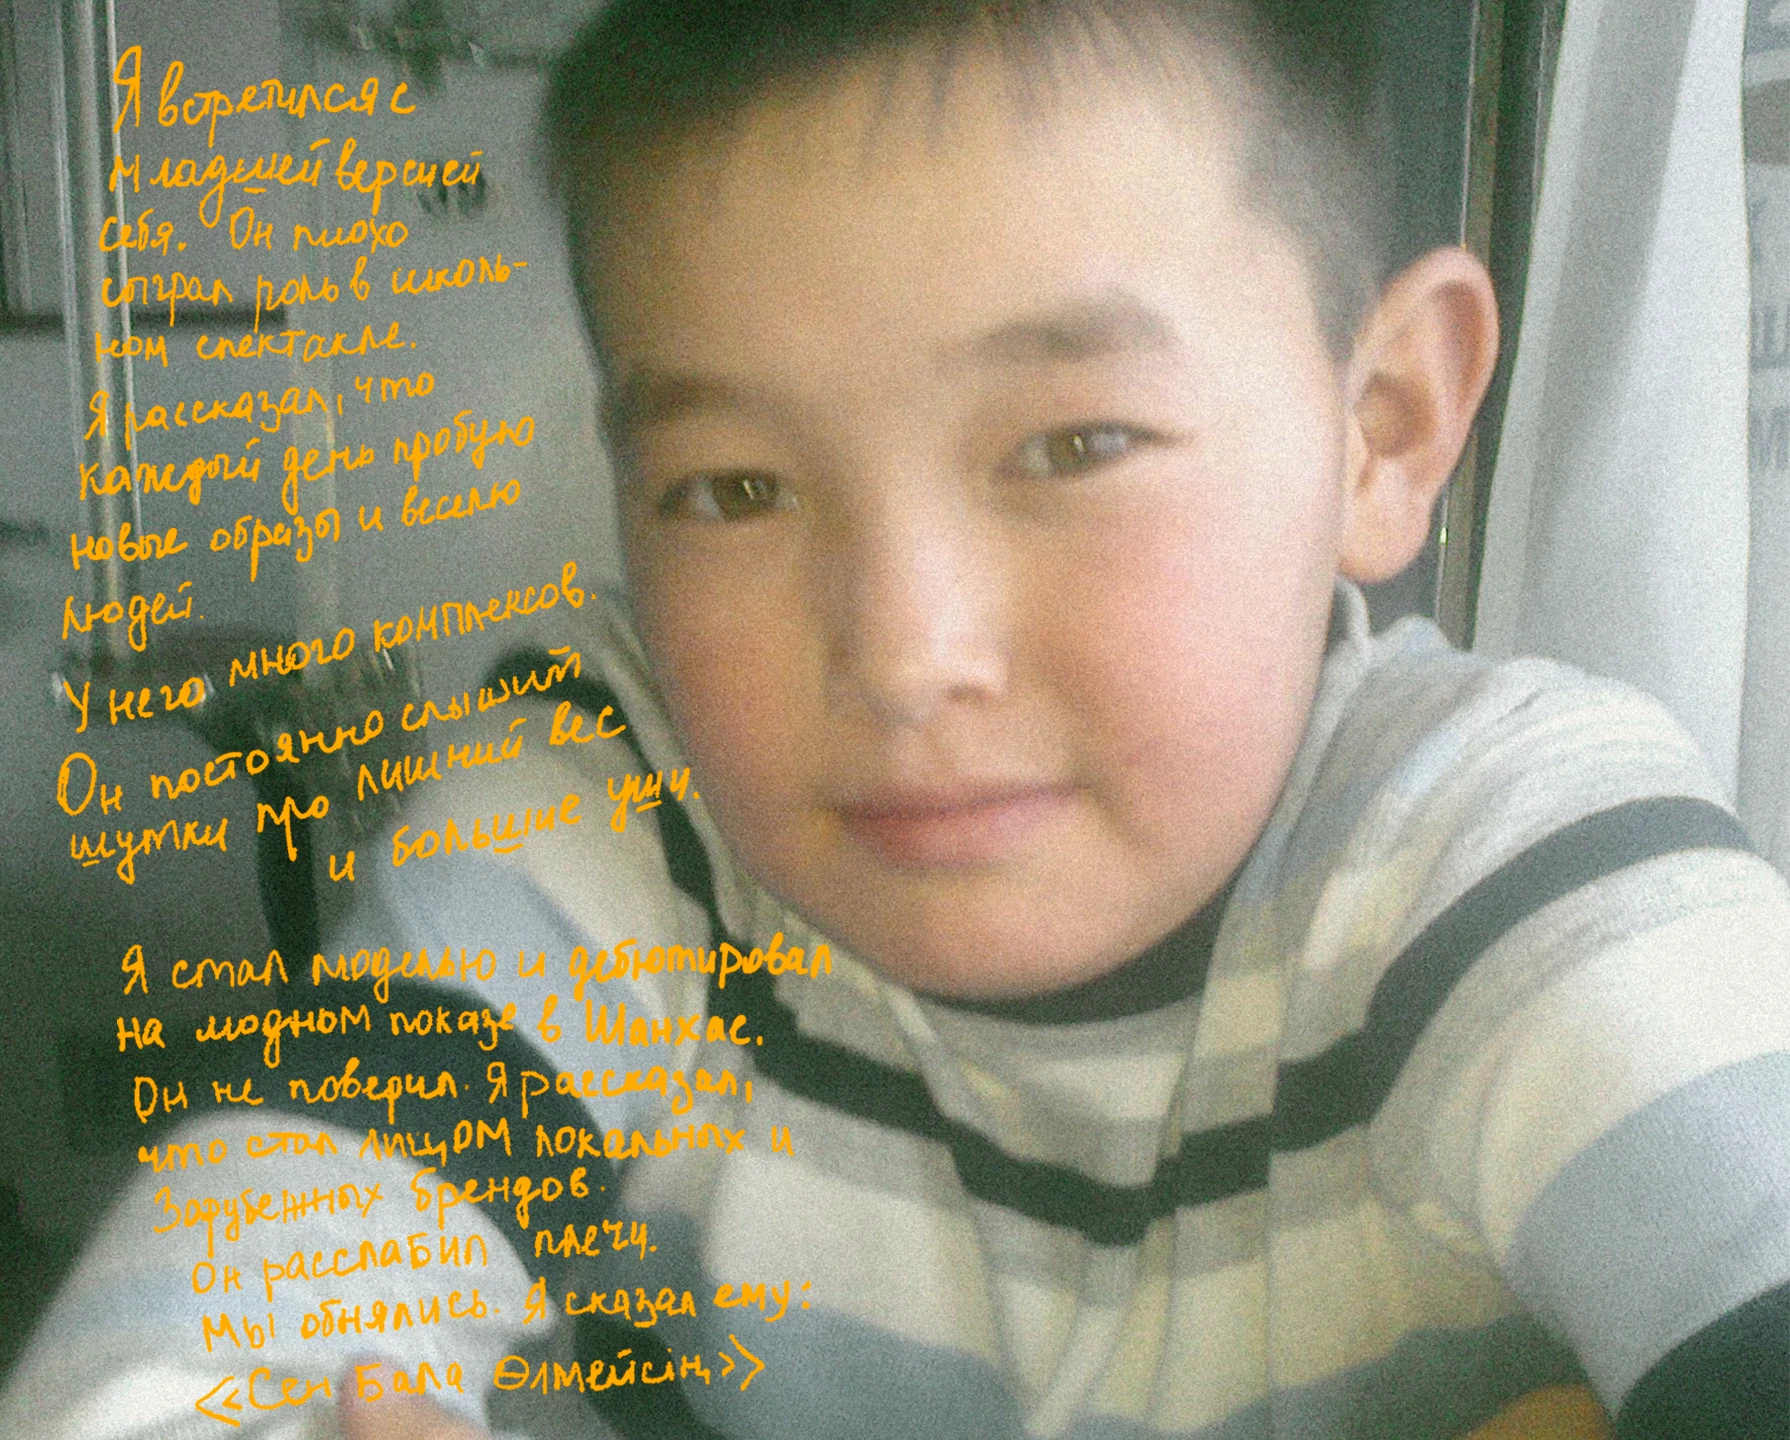 Я встретился с
младшей версией
себя. Он плохо
сыграл роль в школь-
ном спектакле.
Я рассказал, что
каждый день пробую
новые образы и веселю
людей.
У него много комплексов.
Он постоянно слышит
шутки про лишний вес
и большие уши.
Я стал моделью и дебютировал
на модном показе в Шанхае.
Он не поверил. Я рассказал,
что стал лицом локальных и
зарубежных брендов.
Он расслабил плечи.
Мы обнялись. Я сказал ему:
<<Сен Бала Өлмейсің>>